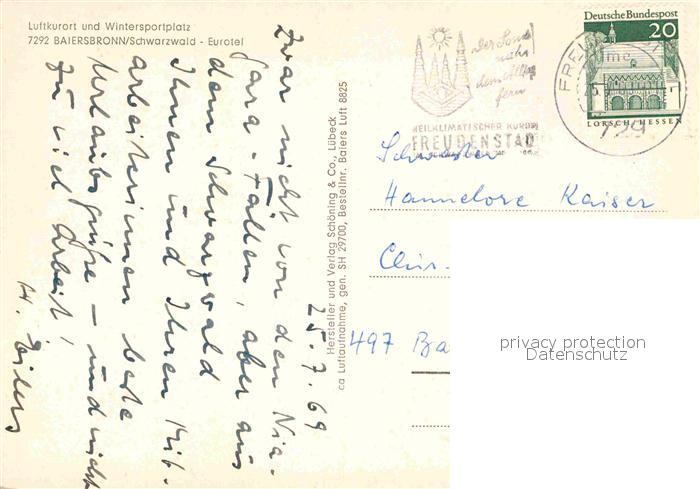 Luftkurort und Wintersportplatz
7292 BAIERSBRONN/Schwarzwald - Eurotel
25.7.69
Zwar nicht von den Nia-
gara-Fällen, aber aus
dem Schwarzwald
Ihnen und Ihren Mit-
arbeiterinnen beste
Urlaubsgrüße – und nicht
zu viel Arbeit!
H. Eilers
Hersteller und Verlag Schöning & Co., Lübeck
ca Luftaufnahme, gen. SH 29700, Bestellnr. Baiers Luft 8825
Der Sonne
näh
dem Alltag
fern
HEILKLIMATISCHER KURORT
FREUDENSTADT
Deutsche Bundespost
20
LORSCH/HESSEN
FREUD
729
Schwester
Hannelore Kaiser
Chir.
497 Ba
privacy protection
Datenschutz